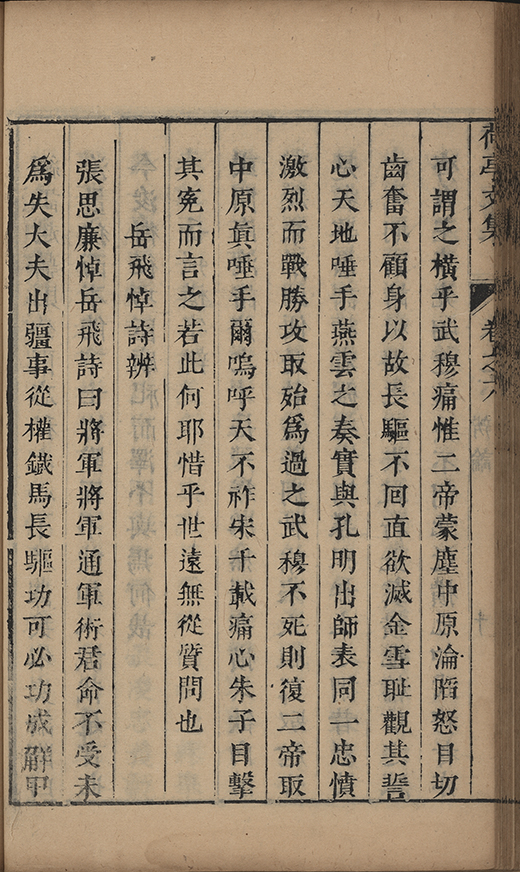 荷亭文集 卷之六
可謂之橫乎武穆痛惟二帝蒙塵中原淪陷怒目切
齒奮不顧身以故長驅不回直欲滅金雪恥觀其誓
心天地唾手燕雲之奏實與孔明出師表同一忠憤
激烈而戰勝攻取始爲過之武穆不死則復二帝取
中原眞唾手爾嗚呼天不祚宋千載痛心朱子目擊
其寃而言之若此何耶惜乎世遠無從質問也
岳飛悼詩辨
張思廉悼岳飛詩曰將軍將軍通軍術君命不受未
爲失大夫出疆事從權鐵馬長驅功可必功成解甲